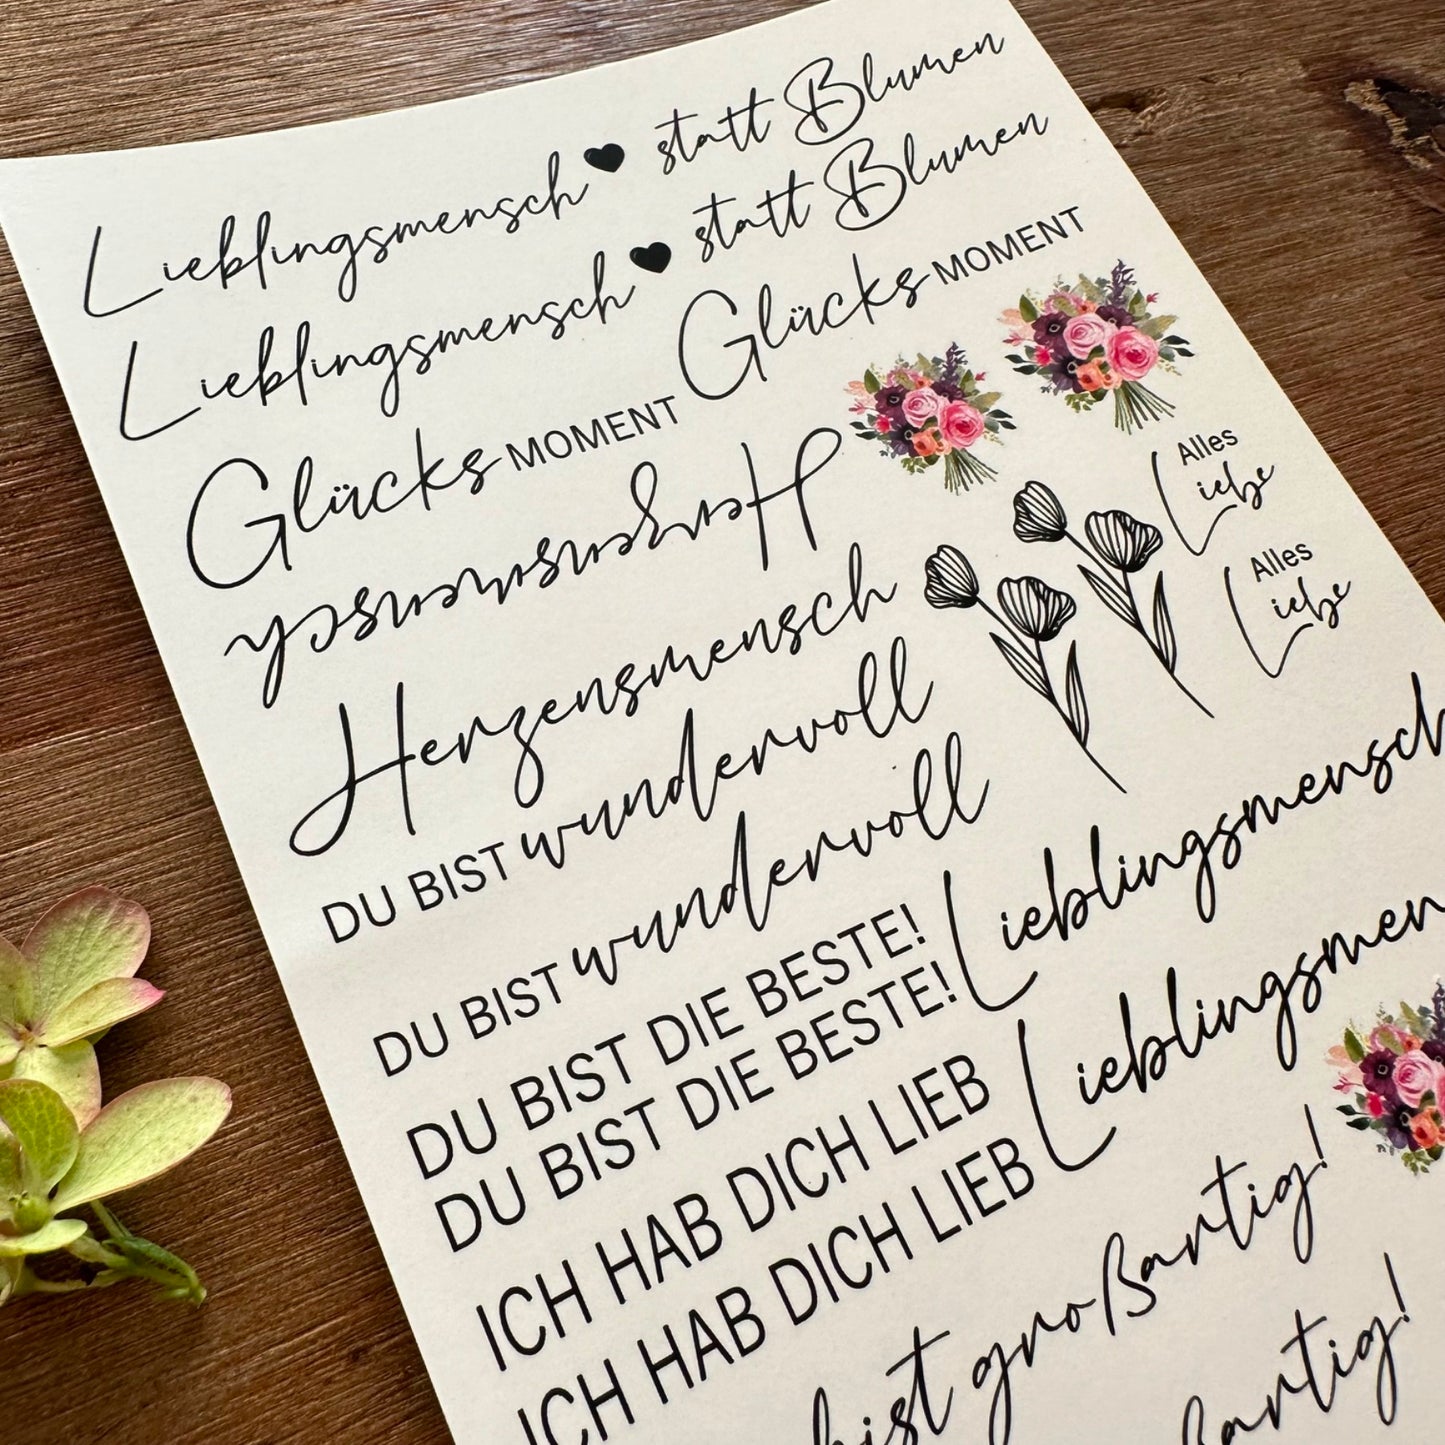 Lieblingsmensch statt Blumen
Lieblingsmensch statt Blumen
GlücksMOMENT GlücksMOMENT
Herzensmensch
Herzensmensch
Alles
Liebe
Alles
Liebe
DU BIST wundervoll
DU BIST wundervoll
DU BIST DIE BESTE! Lieblingsmensch
DU BIST DIE BESTE!
ICH HAB DICH LIEB Lieblingsmen
ICH HAB DICH LIEB
bist großartig!
ßartig!